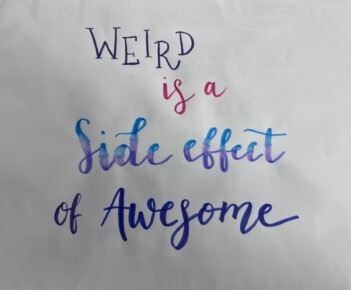 WEIRD
is a
Side effect
of Awesome